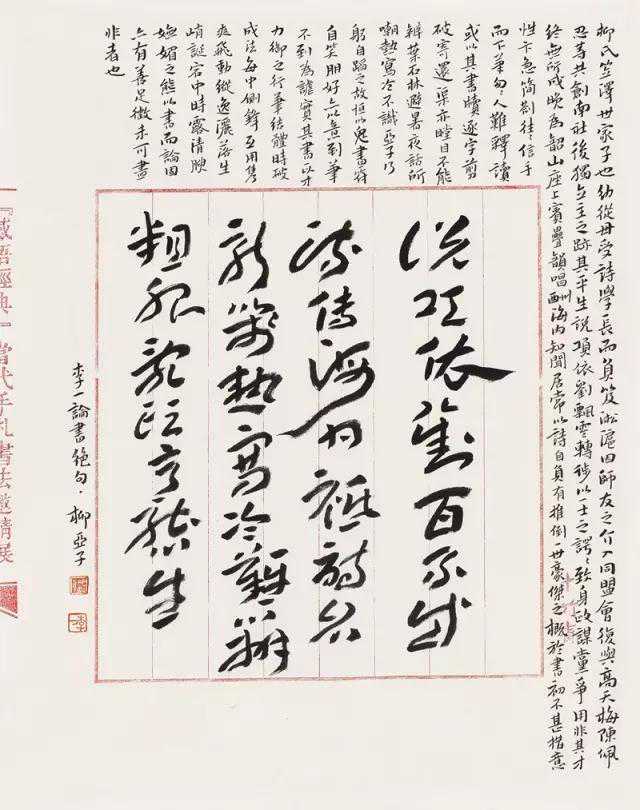 柳氏笠澤世家子也幼從母受詩學長而負笈淞滬因師友之介入同盟會復與高天梅陳佩
忍等共創南社後獨立主之跡其平生說項依劉飄零轉徙以一士之諤諤致身政謀黨爭用非其才
終無所成晚爲韶山座上賓疊韻唱酬海內知聞居常以詩自負有推倒一世豪傑之概於書初不甚措意
性卞急簡劄往往信手
而下筆勾人難釋讀
或以其書牘逐字剪
破寄還渠亦瞠目不能
辨葉石林避暑夜話所
嘲熱寫冷不識亞子乃
躬自蹈之故恒以鬼書符
自笑朋好亦以意到筆
不到爲謔實其書以才
力御之行筆結體時破
成法每中側鋒互用隽
爽飛動縱逸灑落生
峭誕宕中時露清腴
嫵媚之態以書而論固
亦有善足徵未可盡
非者也
說項依劉百不成
流傳海內祗詩名
新箋熱寫冷難辨
粗服亂頭態生
李一論書絕句·柳亞子
經典當代手札書法邀請展